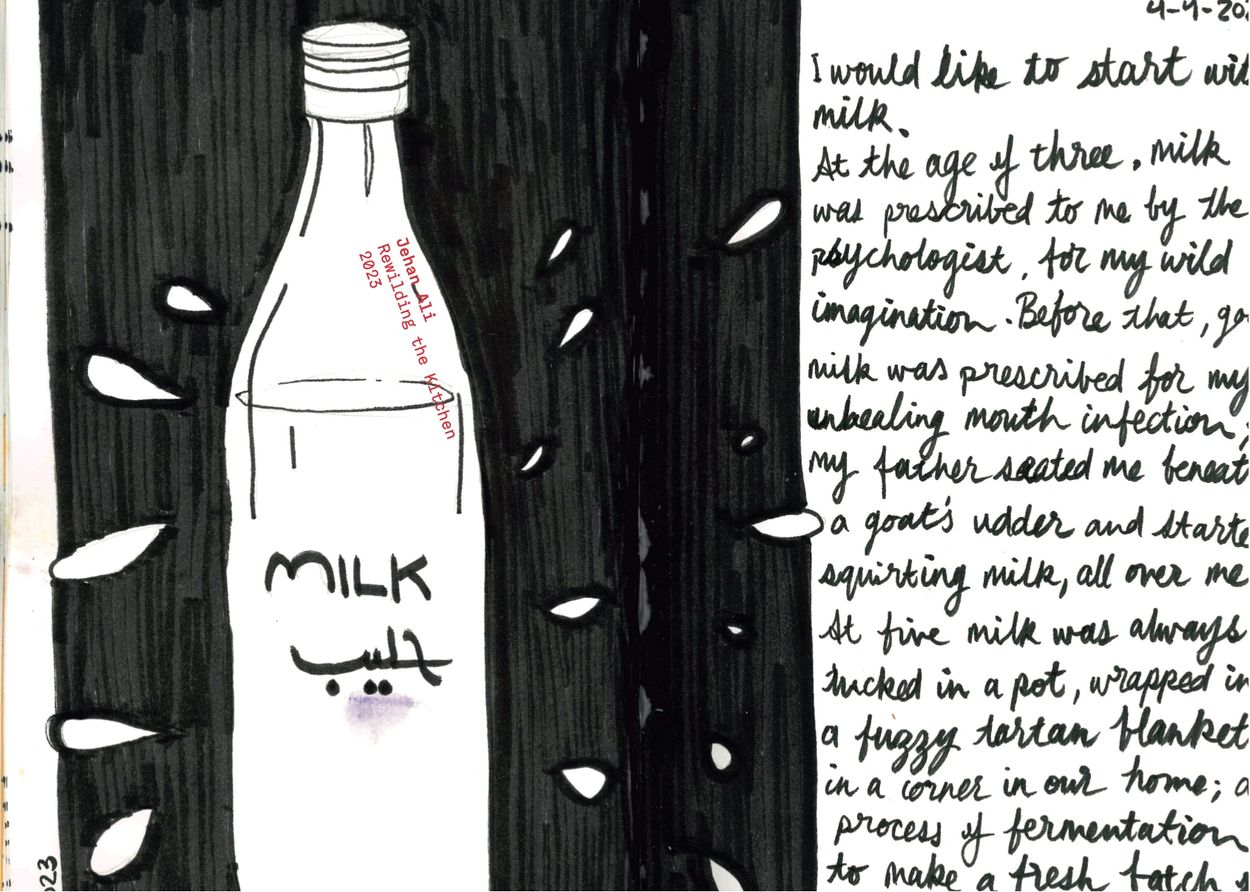 Jehan Ali
Rewilding the Kitchen
2023
MILK
حليب
023
4-4-202
I would like to start wit
milk.
At the age of three, milk
was prescribed to me by the
psychologist, for my wild
imagination. Before that, go
milk was prescribed for my
unhealing mouth infection;
my father seated me beneat
a goat's udder and starte
squirting milk, all over me
At five milk was always
tucked in a pot, wrapped in
a fuzzy tartan blanket
in a corner in our home; a
process of fermentation
to make a fresh batch